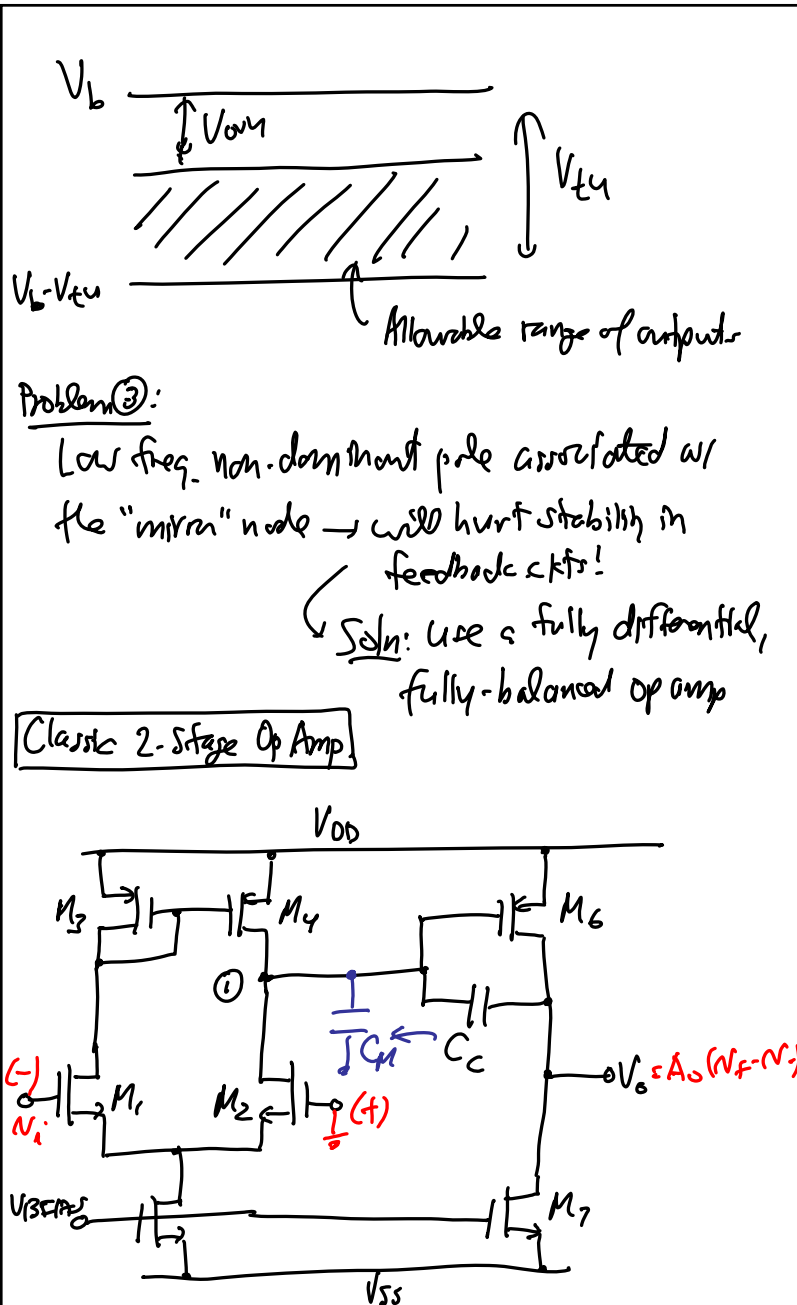 Vb
Vovn
Vtn
Vb-Vtn
Allowable range of outputs
Problem ③:
Low freq. non-dominant pole associated w/
the "mirror" node → will hurt stability in
feedback ckts!
Soln: use a fully differential,
fully-balanced op amp
Classic 2-Stage Op Amp
VDD
M3
M4
M6
①
CM
CC
(-)
M1
M2
(+)
Vo = Ao(V+-V-)
Vi
VBIAS
M7
VSS